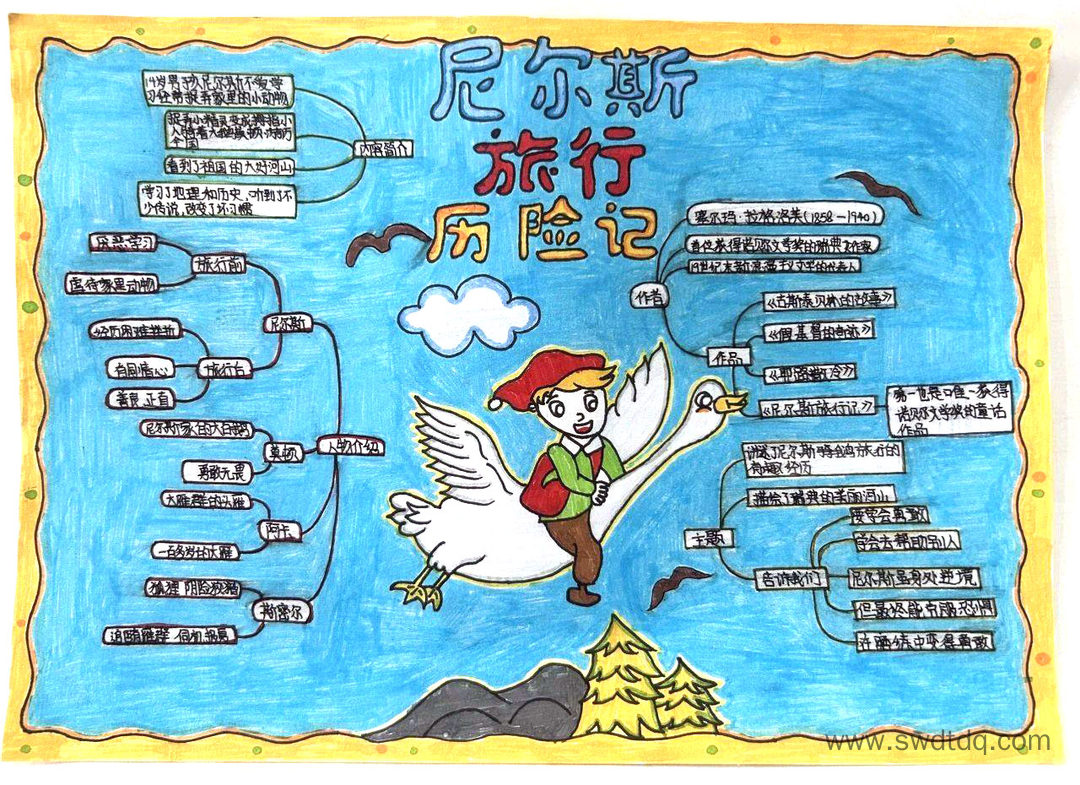 尼尔斯
旅行
历险记
内容简介
14岁男孩尼尔斯不爱学
习经常捉弄家里的小动物
捉弄小精灵变成拇指小
人骑着大鹅
看到了祖国的大好河山
学习了地理和历史,听到了不
少传说,改变了坏习惯
人物介绍
尼尔斯
旅行前
厌恶学习
虐待家里动物
旅行后
经历困难挫折
有同情心
善良 正直
莫顿
尼尔斯家的大白鹅
勇敢无畏
阿卡
大雁群的头雁
一百多岁的大雁
斯密尔
狐狸 阴险狡猾
追随雁群 伺机报复
作者
塞尔玛·拉格洛芙(1858—1940)
首位获得诺贝尔文学奖的瑞典女作家
19世纪末新浪漫主义文学的代表人
作品
《古斯泰贝林的故事》
《假基督的奇迹》
《耶路撒冷》
《尼尔斯旅行记》
第一也是唯一获得
诺贝尔文学奖的童话
作品
主题
讲述了尼尔斯骑鹅旅行的
有趣经历
描绘了瑞典的美丽河山
告诉我们
要学会勇敢
学会去帮助别人
尼尔斯虽身处逆境
但最终能克服恐惧
在磨练中变得勇敢
www.swdtdq.com